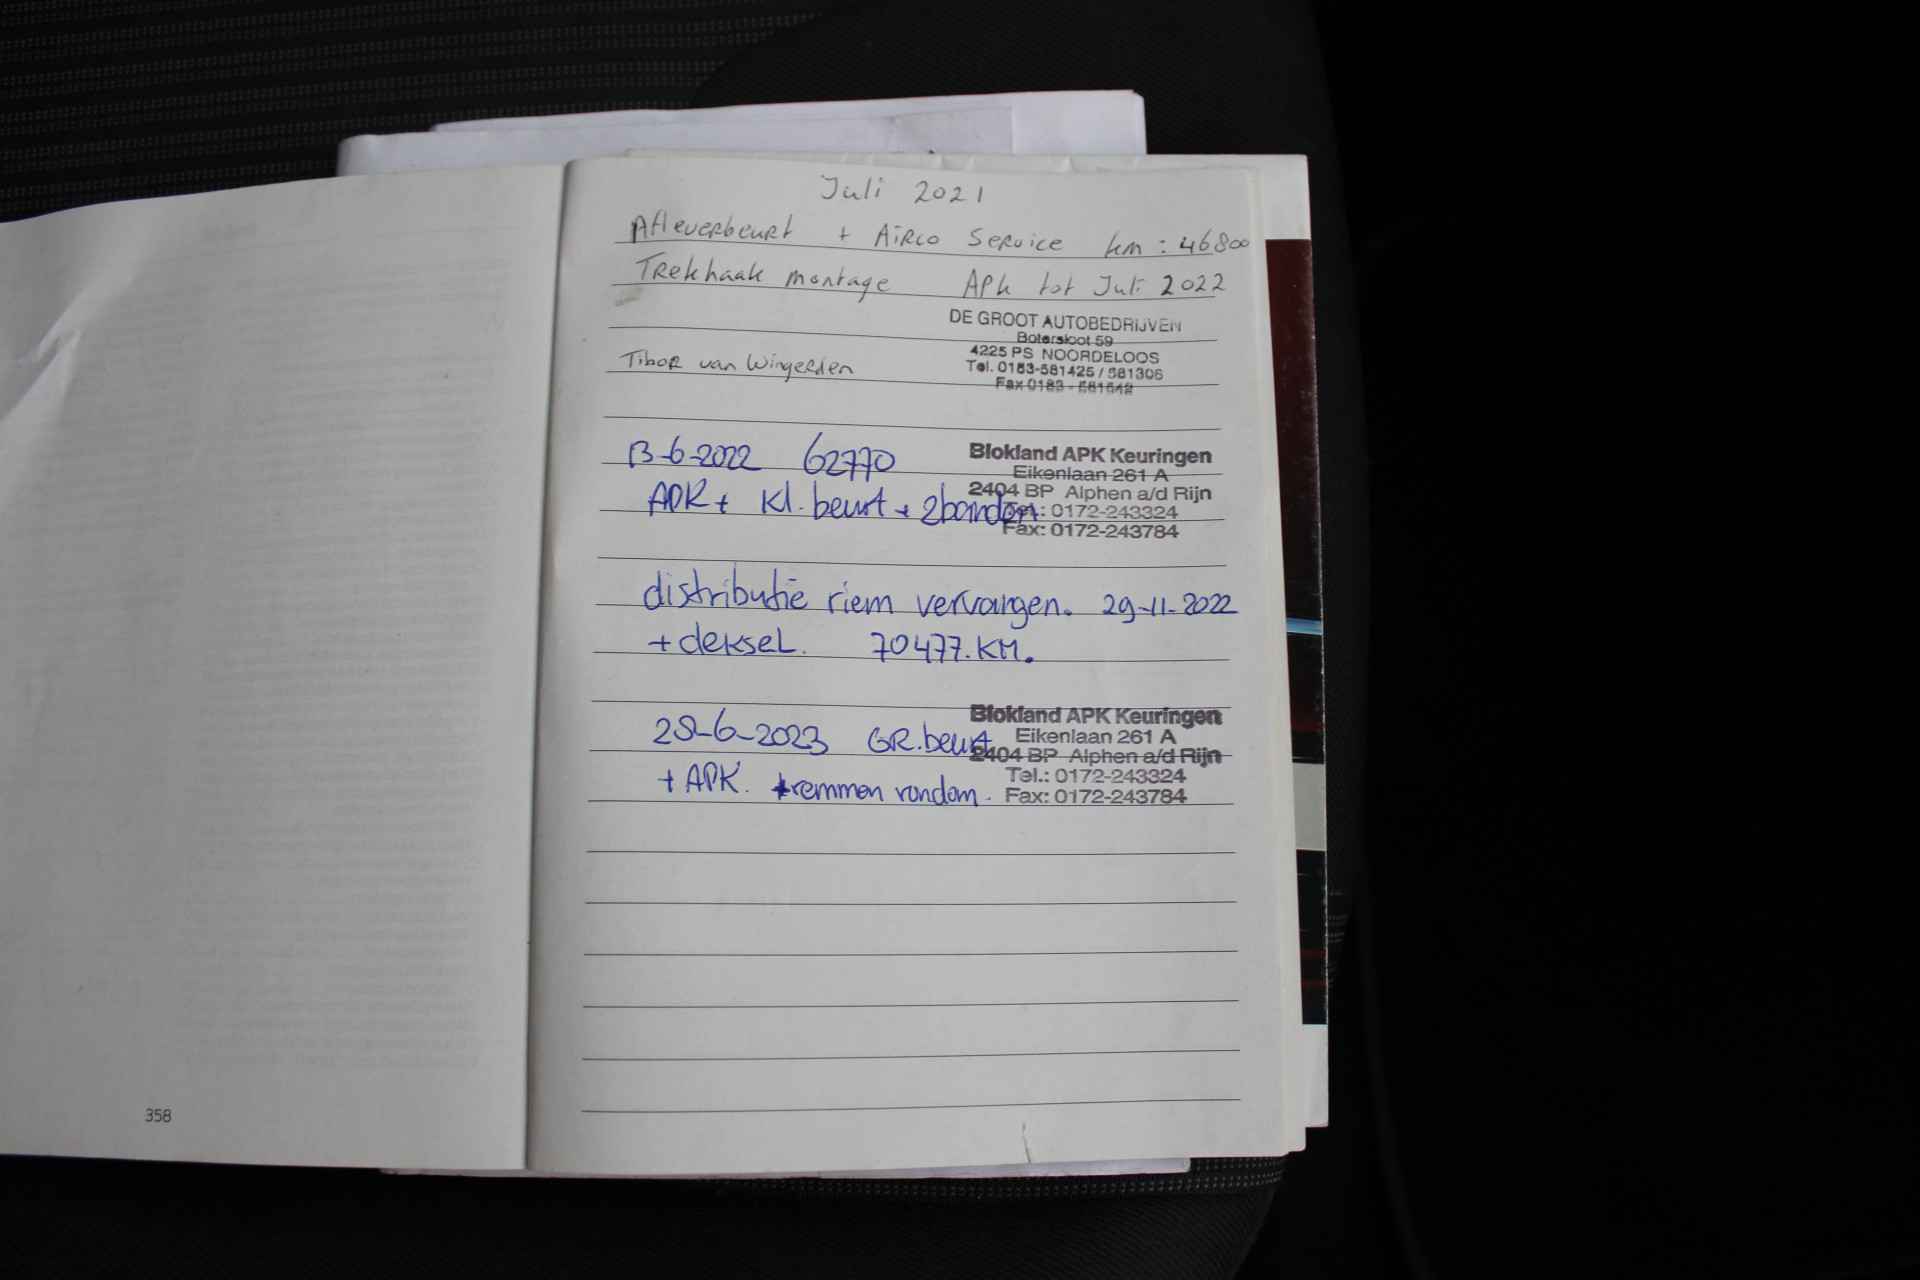 Juli 2021
Afleverbeurt + Airco Service km: 46800
Trekhaak montage APK tot Juli 2022
DE GROOT AUTOBEDRIJVEN
Botersloot 59
4225 PS NOORDELOOS
Tel. 0183-581425 / 581306
Fax 0183 - 581642
Tibor van Wingerden
13-6-2022 62770
APK + Kl. beurt + 2banden
Blokland APK Keuringen
Eikenlaan 261 A
2404 BP Alphen a/d Rijn
Tel.: 0172-243324
Fax: 0172-243784
distributie riem vervangen. 29-11-2022
+ deksel. 70477.KM.
28-6-2023 GR.beurt
+ APK. +remmen rondom.
Blokland APK Keuringen
Eikenlaan 261 A
2404 BP Alphen a/d Rijn
Tel.: 0172-243324
Fax: 0172-243784
358